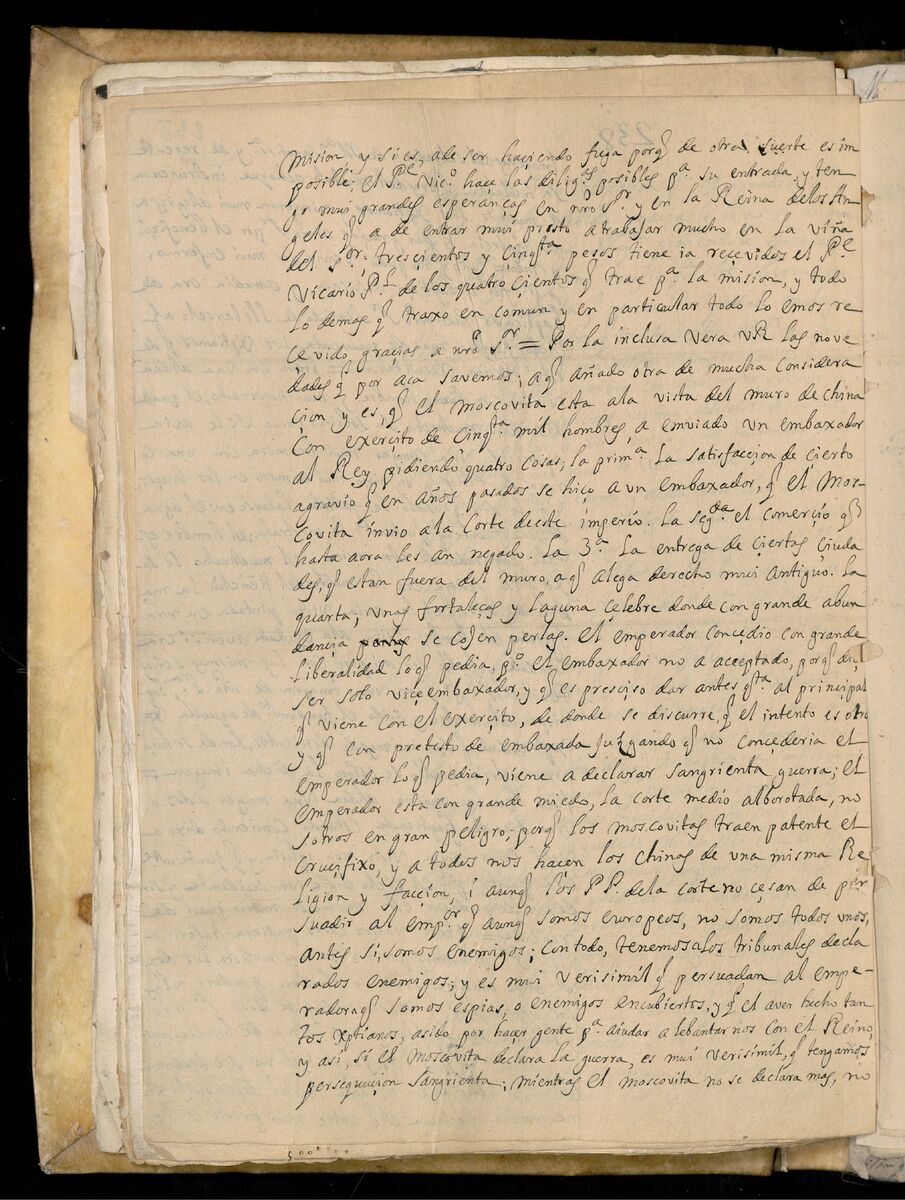 mision, y si es, a de ser haçiendo fuga porq̃ de otra suerte es im
posible; el P.e Vic.o haçe las dilig.as posibles p.a su entrada, y ten
go mui grandes esperanças en nr̃o S.r y en la Reina delos An
geles q̃ a de entrar mui presto a trabajar mucho en la viña
del S.or; tresçientos y çinq.ta pesos tiene ia reçevidos el P.e
Vicario P.l de los quatroçientos q̃ trae p.a la mision, y todo
lo demas q̃ traxo en comun y en particular todo lo emos re
çevido, graçias a nr̃o S.r = Por la inclusa Vera VR las nove
dades q̃ por aca savemos; aq̃ añado otra de mucha considera
çion y es, q̃ el moscovita esta ala vista del muro de china
Con exerçito de çinq.ta mil hombres, a enviado un embaxador
al Rey, pidiendo quatro cosas; la prim.a La satisfaccion de çierto
agravio q̃ en años pasados se hiço a vn embaxador, q̃ el Mos-
covita invio ala Corte deste imperio. La seg.da el comerçio q̃
hasta aora les an negado. La 3.a La entrega de çiertas çiuda
des, q̃ estan fuera del muro, a q̃ alega derecho mui antiguo. La
quarta; unas fortaleças y laguna çelebre donde con grande abun
dançia se cojen perlas. el emperador conçedio con grande
liberalidad lo q̃ pedia, p.o el embaxador no a acceptado, porq̃ diç
ser solo viçeembaxador, y q̃ es presciso dar antes q.ta al prinçipal
q̃ viene con el exerçito, de donde se discurre, q̃ el intento es otro
y q̃ con pretesto de embaxada juzgando q̃ no conçederia el
emperador lo q̃ pedia, viene a declarar sangrienta guerra; el
emperador esta con grande miedo, la corte medio alborotada, no
sotros en gran peligro; porq̃ los moscovitas traen patente el
Crucifixo, y a todos nos hacen los chinas de una misma Re
ligion y facçion, i aunq̃ los PP. dela corte no çesan de per
suadir al emp.or q̃ aunq̃ somos europeos, no somos todos unos,
antes si, somos enemigos; con todo, tenemos alos tribunales decla
rados enemigos; y es mui verisimil q̃ persuadan al empe-
rador aq̃ somos espias, o enemigos encubiertos, y q̃ el aver hecho tan
tos xptianos, asido por haçer gente p.a aiudar a lebantarnos con el Reino,
y asi, si el moscovita declara la guerra, es mui verisimil, q̃ tengamos
persequuçion sangrienta; mientras el moscovita no se declara mas, no